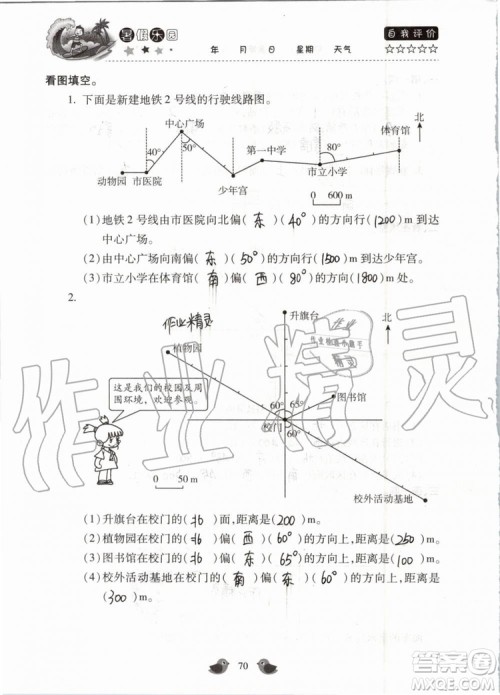 暑假乐园
年 月 日 星期 天气
自我评价
☆☆☆☆☆
看图填空。
1. 下面是新建地铁2号线的行驶线路图。
北
中心广场
体育馆
40°
50°
第一中学
80°
动物园 市医院
少年宫
市立小学
0 600 m
(1)地铁2号线由市医院向北偏(东)(40°)的方向行(1200)m到达
中心广场。
(2)由中心广场向南偏(东)(50°)的方向行(1500)m到达少年宫。
(3)市立小学在体育馆(南)偏(西)(80°)的方向(1800)m处。
2.
作业精灵
升旗台
北
植物园
作业检查小助手
精灵
这是我们的校园及周
围环境,欢迎参观!
60°
65°
图书馆
校门
60°
0 50 m
校外活动基地
(1)升旗台在校门的(北)面,距离是(200)m。
(2)植物园在校门的(北)偏(西)(60°)的方向上,距离是(250)m。
(3)图书馆在校门的(北)偏(东)(65°)的方向上,距离是(100)m。
(4)校外活动基地在校门的(南)偏(东)(60°)的方向上,距离是
(300)m。
70
作业精灵
答案圈
MXQE.COM